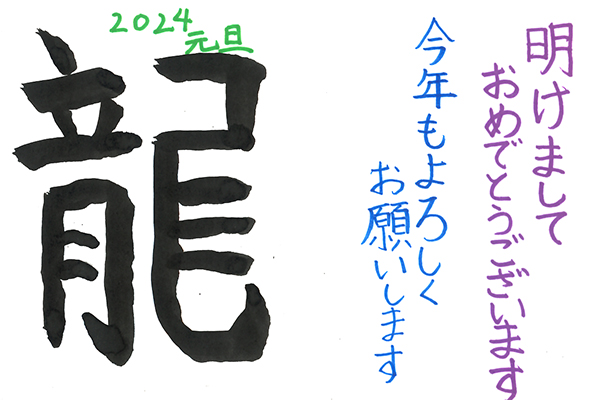 明けまして
おめでとうございます
今年もよろしく
お願いします
2024
元旦
龍